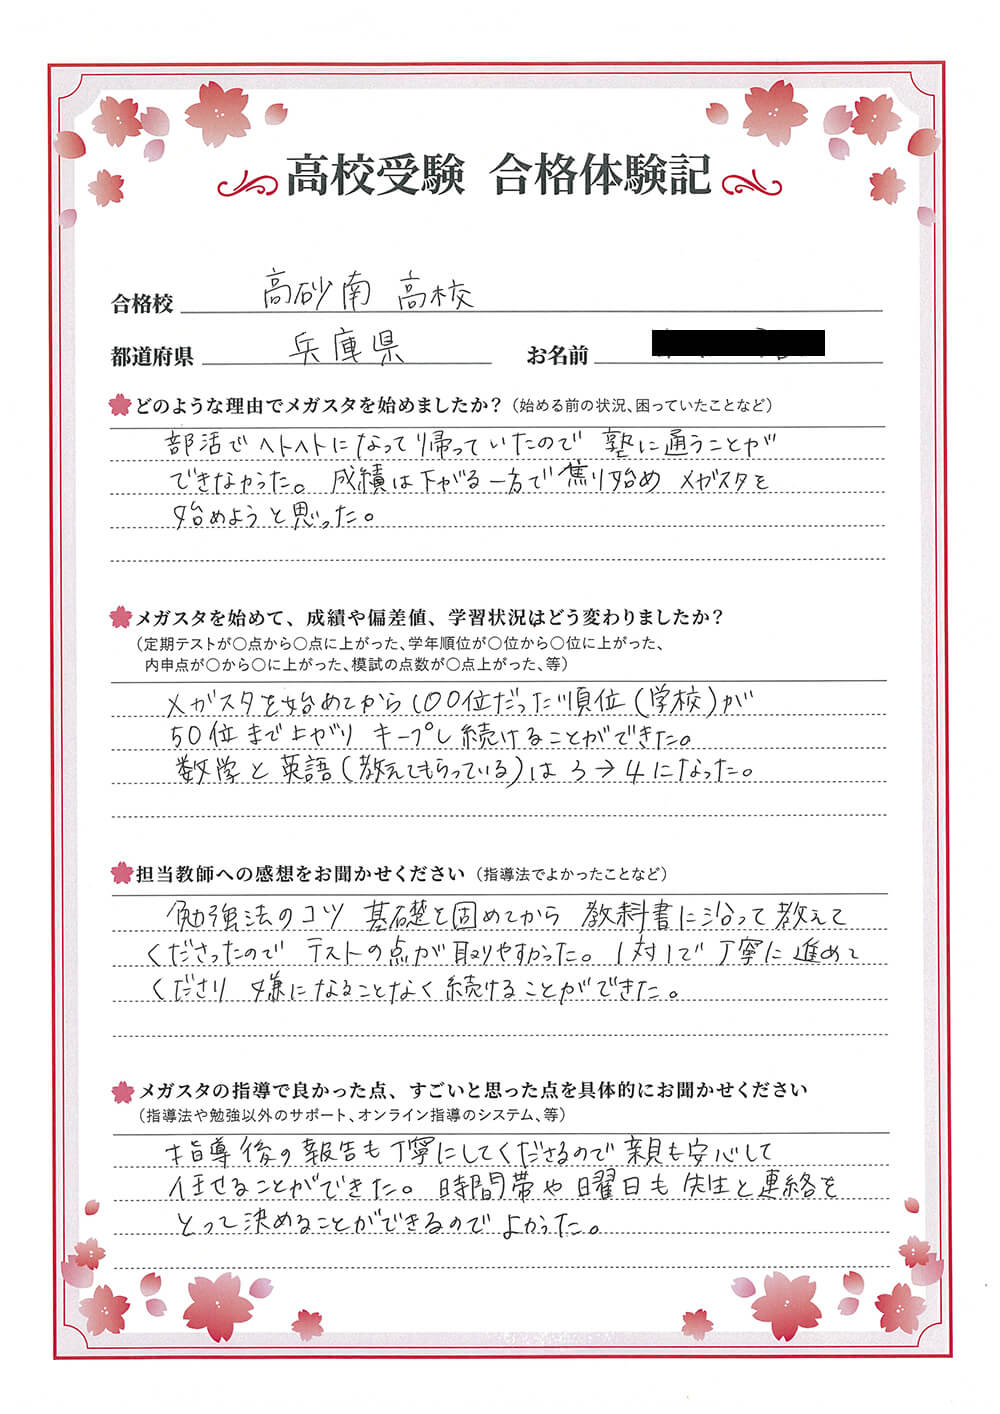 高校受験 合格体験記
合格校 高砂南 高校
都道府県 兵庫県 お名前
どのような理由でメガスタを始めましたか？（始める前の状況、困っていたことなど）
部活でヘトヘトになって帰っていたので 塾に通うことが
できなかった。 成績は下がる一方で 焦り始め メガスタを
始めようと思った。
メガスタを始めて、成績や偏差値、学習状況はどう変わりましたか？
（定期テストが〇点から〇点に上がった、学年順位が〇位から〇位に上がった、
内申点が〇から〇に上がった、模試の点数が〇点上がった、等）
メガスタを始めてから 100位だった順位(学校)が
50位まで上がり キープし続けることができた。
数学と英語(教えてもらっている)は 3→4になった。
担当教師への感想をお聞かせください（指導法でよかったことなど）
勉強法のコツ 基礎を固めてから 教科書に沿って教えて
くださったので テストの点が取りやすかった。 1対1で丁寧に進めて
くださり 嫌になることなく続けることができた。
メガスタの指導で良かった点、すごいと思った点を具体的にお聞かせください
（指導法や勉強以外のサポート、オンライン指導のシステム、等）
指導後の報告も丁寧にしてくださるので親も安心して
任せることができた。 時間帯や曜日も 先生と連絡を
とって決めることができるので よかった。